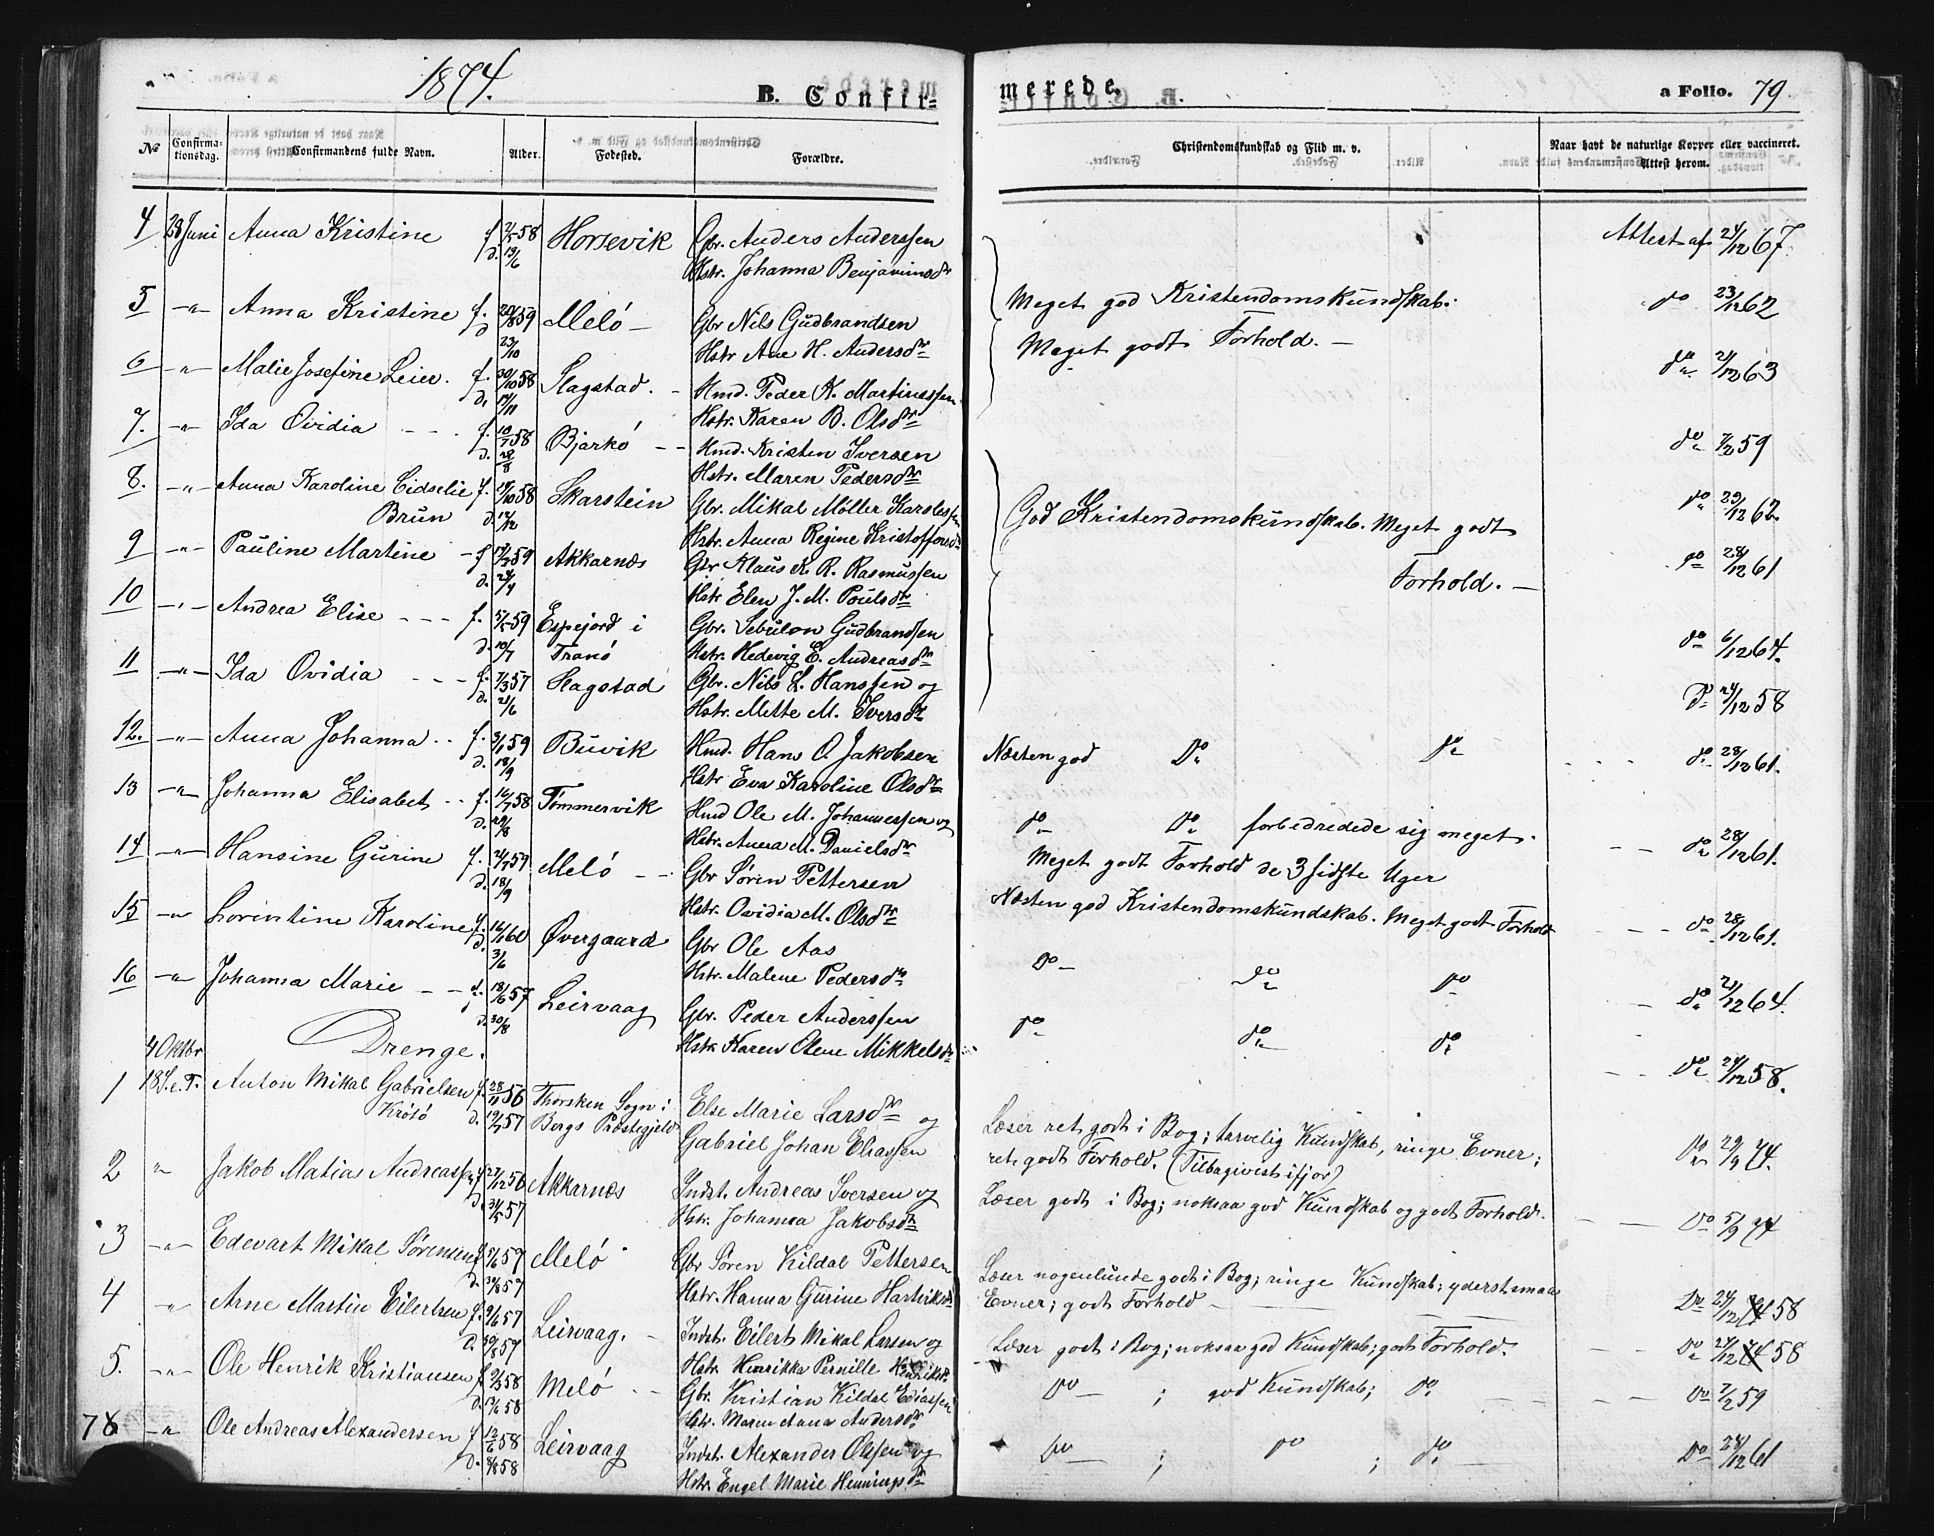 1874.
B. Confir-
merede.
a Folio. 79.
No
Confirma-
tionsdag.
Confirmandens fulde Navn.
Alder.
Fødested.
Forældre.
Christendomskundskab og Flid m. v.
Naar havt de naturlige Kopper eller vaccineret.
Attest herom.
4 28 Juni Anna Kristine f. 2/5 58 Horsevik Gbr. Anders Anderssen Attest af 24/12 67.
d. 13/6 Hstr. Johanna Benjaminsdr
5 -"- Anna Kristine f. 20/8 59 Meló - Gbr Nils Gudbrandsen Meget god Kristendomskundskab. do 23/12 62
d. 23/10 Hstr Ane H. Andersdr Meget godt Forhold. -
6 -"- Malie Josefine Leier. f. 30/10 58 Slagstad. - Hmd. Peder K. Martinussen do 21/12 63
d. Hstr. Karen B. Olsdr
7. -"- Ida Ovidia - - - f. 10/7 58 Bjarkó - - Hmd. Kristen Iversen do 7/2 59
d. 28/8 Hstr. Maren Pedersdr
8. -"- Anna Karoline Cidselie f. 58 Skarstein Gbr. Mikal Möller Karolessen God Kristendomskundskab. Meget godt do 29/12 62.
Brun d. 12/12 Hstr. Anna Regine Kristoffersdr
9 -"- Pauline Martine - f 59 Akkarnæs Gbr Klaus K. R. Rasmussen Forhold. - do 28/12 61
d. 24/4 Hstr Elen J. M. Poulsdr
10 -"- Andrea Elise - - - f. 5/5 59 Espejord i Gbr. Sebulon Gudbrandsen do 6/12 64.
d. 10/7 Tranó Hstr. Hedevig E. Andreasdr
11 -"- Ida Ovidia - - - f. 7/3 57 Slagstad Gbr. Nils L. Hanssen og do 24/12 58
d. 21/6 Hstr. Mette M. Iversdr
12. -"- Anna Johanna - - f. 3/1 59 Buvik Hmd. Hans O. Jakobsen Næsten god Do do - - - - do 28/12 61.
d. 18/9 Hstr Eva Karoline Olsdr
13 -"- Johanna Elisabet - - f. 16/7 58 Tømmervik Hmd Ole M. Johannessen og do Do forbedredede sig meget. - - do 28/12 61.
d. 29/8 Hstr. Anna M. Danielsdr Meget godt Forhold de 3 sidste Uger
14 -"- Hansine Gurine f. 59 Meló - - Gbr Søren Pettersen Næsten god Kristendomskundskab. Meget godt Forhold - - - do 28/12 61.
d. 18/9 Hstr. Ovidia M. Olsdr
15 -"- Lorintine Karoline f. 16/1 60 Øvergaard Gbr Ole Aas Do - do do - do 21/12 64.
d. 3/6 Hstr. Malene Pedersdr
16 -"- Johanna Marie - - f. 18/6 57 Leirvaag Gbr. Peder Anderssen do do do do 24/12 58.
d. 30/8 Hstr Karen Olene Mikkelsdr
4 Oktbr Drenge.
1 18 S. e. T. Anton Mikal Gabrielsen f. 28/11 56 Thorsken Sogn i Else Marie Larsdr og Læser ret godt i Bog; tarvelig Kundskab, ringe Evner; Do 29/9 74.
Krósó d. 19/7 57 Bergs Præstegjeld Gabriel Johan Eliassen ret godt Forhold. (Tilbagevist ifjor)
2 " Jakob Matias Andreassen f. 27/12 56 Akkarnæs Indst. Andreas Iversen og Læser godt i Bog; noksaa god Kundskab og godt Forhold. - - Do 5/9 74
d. 31/5 57 Hstr. Johanna Jakobsdr
3 -"- Edevart Mikal Sørensen f. 5/6 57 Meló Gbr Søren Kildal Pettersen Læser nogenlunde godt i Bog; ringe Kundskab; yderst smaa
d. 57 Hstr. Hanna Gurine Hartviksdr Evner; godt Forhold - Do 24/12 58
4 " Arne Martin Eilertsen f. 9/6 57 Leirvaag. - Indst. Eilert Mikal Larsen og Læser godt i Bog; noksaa god Kundskab; godt Forhold. - Do 24/12 58
d. 30/8 57 Hstr Henrikka Pernille Henriksdr
5. -"- Ole Henrik Kristiansen f 9/3 58 Meló - - Gbr. Kristian Kildal Ediassen Do - ; god Kundskab; Do - - - Do 7/2 59
d. 58 Hstr. Maren Anna Andersdr
78 -"- Ole Andreas Alexandersen f 12/6 58 Leirvaag Indst. Alexander Olssen og Do - ; Do ; do - Do 28/12 61
d. 8/8 58 Hstr. Engel Marie Henningsdr